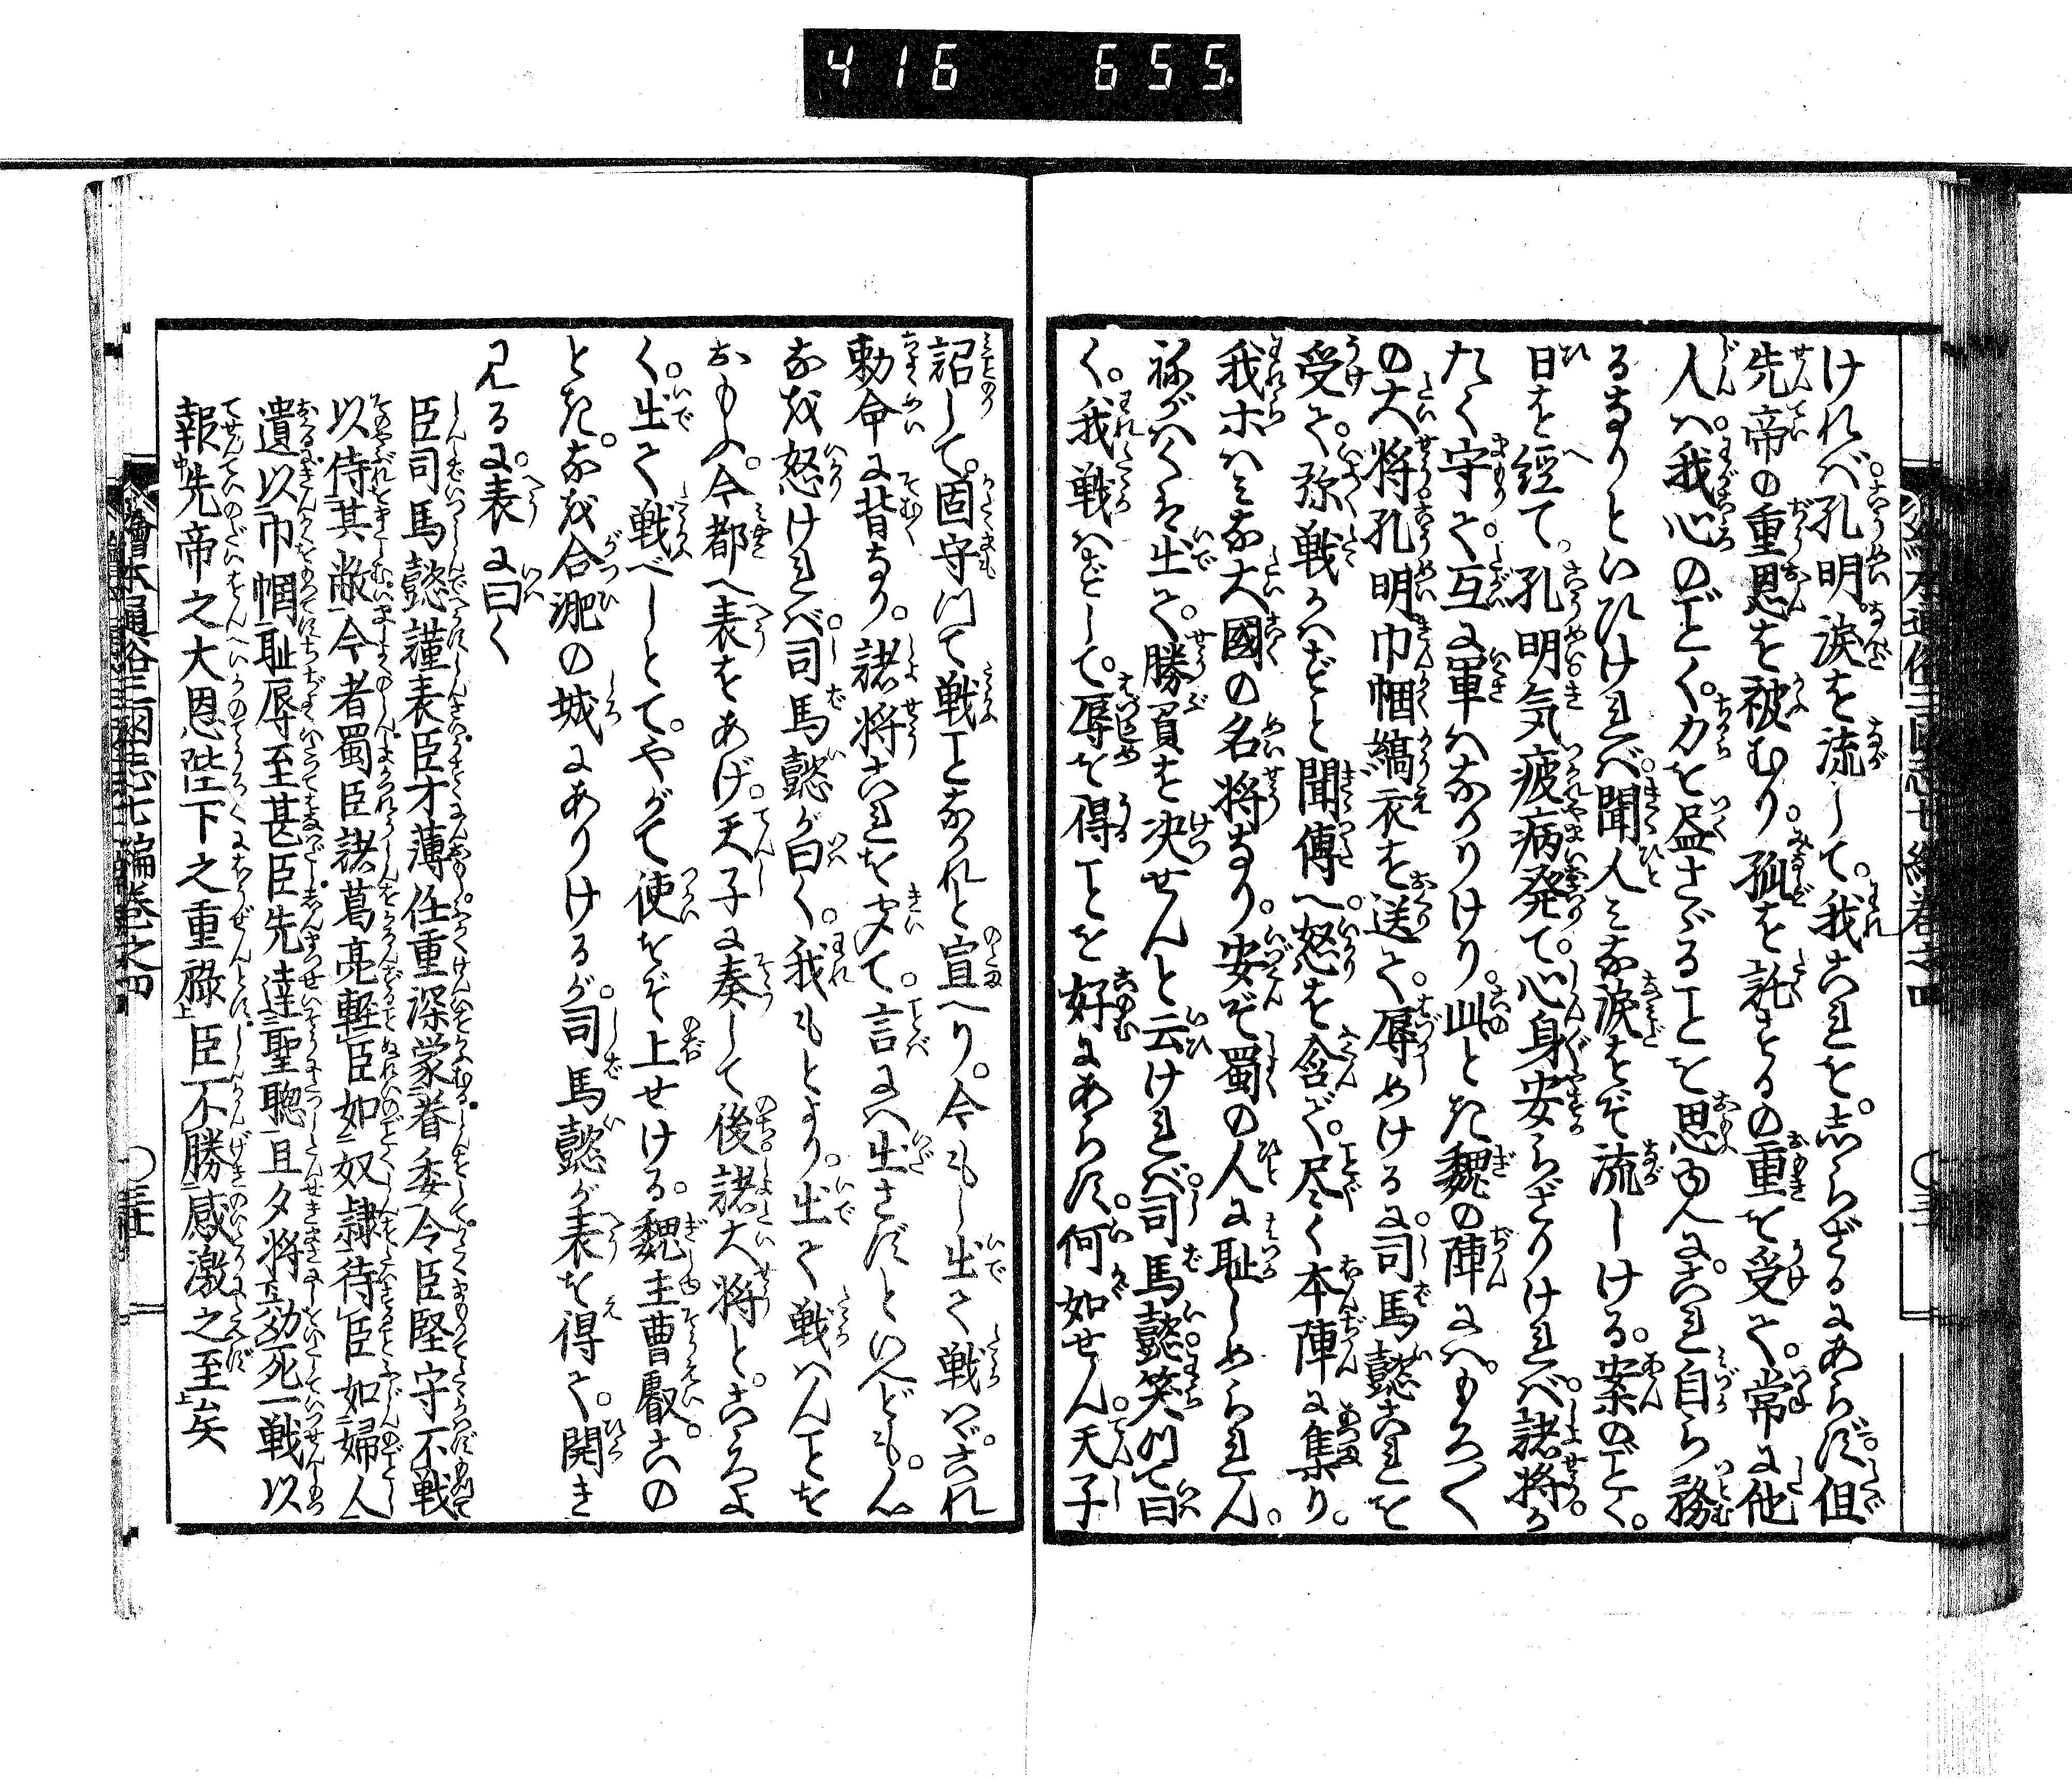 416 655
けれバ孔明涙を流して。我これを。志らざるにあらず。但
先帝の重恩を被むり。孤を託さるの重を受て。常に他
人ハ。我心のごとく。力を盡さゞることを思ゆへに。これ自ら務
るなりといひけれバ。聞人ミな涙をぞ流しける。案のごとく。
日を經て孔明気疲病発て。心身安らざりけれバ。諸將か
たく守て。互に軍ハなかりけり。此とき魏の陣にハ。もろ〱
の大將。孔明巾幗縞衣を送て。辱めけるに。司馬懿これを
受て。弥戦ハざと聞傳へ。怒を含で。尽く本陣に集り。
我ホハミな大國の名將なり。安ぞ蜀の人に恥しめられん。
祢がハくハ出て。勝負を決せんと云けれバ。司馬懿笑つて曰
く。我戦ハざして。辱を得ことを好にあらず。何如せん。天子
詔して。固守つて戦ことなかれと宣へり。今もし出て戦ハヾ。これ
勅命に背なり。諸將これを聞て。言にハ出さずといへども。心
なを怒けれバ。司馬懿が曰く。我もとより。出て戦ハんことを
おもふ。今都へ表をあげ。天子に奏して後。諸大將と。こゝろよ
く。出て戦べしとて。やがて使をぞ上せける。魏主曹叡。この
とき。なを合淝の城にありけるが。司馬懿が表を得て。開き
見るに。表に曰く
臣司馬懿謹表臣才薄任重深蒙眷委今臣堅守不戦
以待其敝今者蜀臣諸葛亮輕臣如奴隷待臣如婦人
遺以巾幗恥辱至甚臣先達聖聰旦夕將効死一戦以
報先帝之大恩陛下之重祿臣不勝感激之至矣
繪本通俗三國志七編卷之四